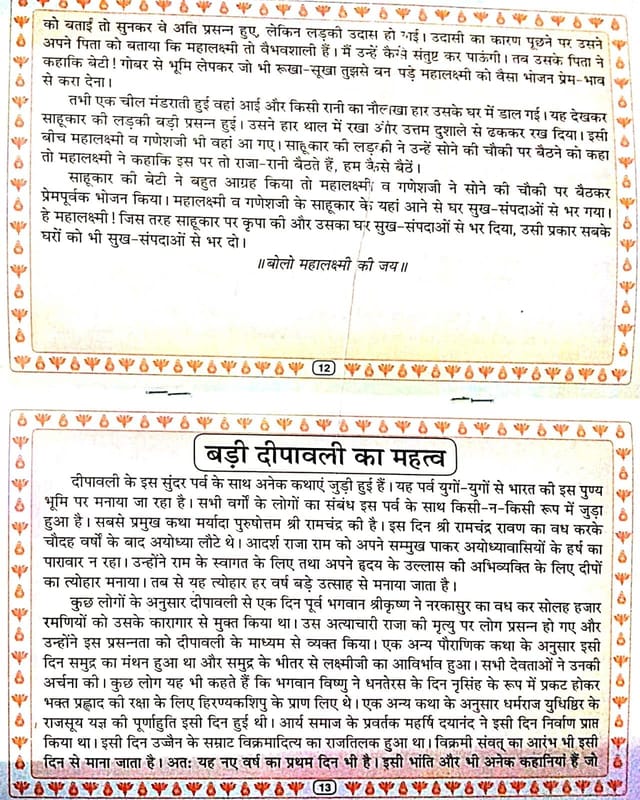 को बताई तो सुनकर वे अति प्रसन्न हुए, लेकिन लड़की उदास हो गई। उदासी का कारण पूछने पर उसने
अपने पिता को बताया कि महालक्ष्मी तो वैभवशाली हैं। मैं उन्हें कैसे संतुष्ट कर पाऊंगी। तब उसके पिता ने
कहाकि बेटी! गोबर से भूमि लेपकर जो भी रूखा-सूखा तुझसे बन पड़े महालक्ष्मी को वैसा भोजन प्रेम-भाव
से करा देना।
तभी एक चील मंडराती हुई वहां आई और किसी रानी का नौलखा हार उसके घर में डाल गई। यह देखकर
साहूकार की लड़की बड़ी प्रसन्न हुई। उसने हार थाल में रखा और उत्तम दुशाले से ढककर रख दिया। इसी
बीच महालक्ष्मी व गणेशजी भी वहां आ गए। साहूकार की लड़की ने उन्हें सोने की चौकी पर बैठने को कहा
तो महालक्ष्मी ने कहाकि इस पर तो राजा-रानी बैठते हैं, हम कैसे बैठें।
साहूकार की बेटी ने बहुत आग्रह किया तो महालक्ष्मी व गणेशजी ने सोने की चौकी पर बैठकर
प्रेमपूर्वक भोजन किया। महालक्ष्मी व गणेशजी के साहूकार के यहां आने से घर सुख-संपदाओं से भर गया।
हे महालक्ष्मी! जिस तरह साहूकार पर कृपा की और उसका घर सुख-संपदाओं से भर दिया, उसी प्रकार सबके
घरों को भी सुख-संपदाओं से भर दो।
॥बोलो महालक्ष्मी की जय॥
12
बड़ी दीपावली का महत्व
दीपावली के इस सुंदर पर्व के साथ अनेक कथाएं जुड़ी हुई हैं। यह पर्व युगों-युगों से भारत की इस पुण्य
भूमि पर मनाया जा रहा है। सभी वर्गों के लोगों का संबंध इस पर्व के साथ किसी-न-किसी रूप में जुड़ा
हुआ है। सबसे प्रमुख कथा मर्यादा पुरुषोत्तम श्री रामचंद्र की है। इस दिन श्री रामचंद्र रावण का वध करके
चौदह वर्षों के बाद अयोध्या लौटे थे। आदर्श राजा राम को अपने सम्मुख पाकर अयोध्यावासियों के हर्ष का
पारावार न रहा। उन्होंने राम के स्वागत के लिए तथा अपने हृदय के उल्लास की अभिव्यक्ति के लिए दीपों
का त्योहार मनाया। तब से यह त्योहार हर वर्ष बड़े उत्साह से मनाया जाता है।
कुछ लोगों के अनुसार दीपावली से एक दिन पूर्व भगवान श्रीकृष्ण ने नरकासुर का वध कर सोलह हजार
रमणियों को उसके कारागार से मुक्त किया था। उस अत्याचारी राजा की मृत्यु पर लोग प्रसन्न हो गए और
उन्होंने इस प्रसन्नता को दीपावली के माध्यम से व्यक्त किया। एक अन्य पौराणिक कथा के अनुसार इसी
दिन समुद्र का मंथन हुआ था और समुद्र के भीतर से लक्ष्मीजी का आविर्भाव हुआ। सभी देवताओं ने उनकी
अर्चना की। कुछ लोग यह भी कहते हैं कि भगवान विष्णु ने धनतेरस के दिन नृसिंह के रूप में प्रकट होकर
भक्त प्रह्लाद की रक्षा के लिए हिरण्यकशिपु के प्राण लिए थे। एक अन्य कथा के अनुसार धर्मराज युधिष्ठिर के
राजसूय यज्ञ की पूर्णाहुति इसी दिन हुई थी। आर्य समाज के प्रवर्तक महर्षि दयानंद ने इसी दिन निर्वाण प्राप्त
किया था। इसी दिन उज्जैन के सम्राट विक्रमादित्य का राजतिलक हुआ था। विक्रमी संवत् का आरंभ भी इसी
दिन से माना जाता है। अत: यह नए वर्ष का प्रथम दिन भी है। इसी भांति और भी अनेक कहानियां हैं जो
13